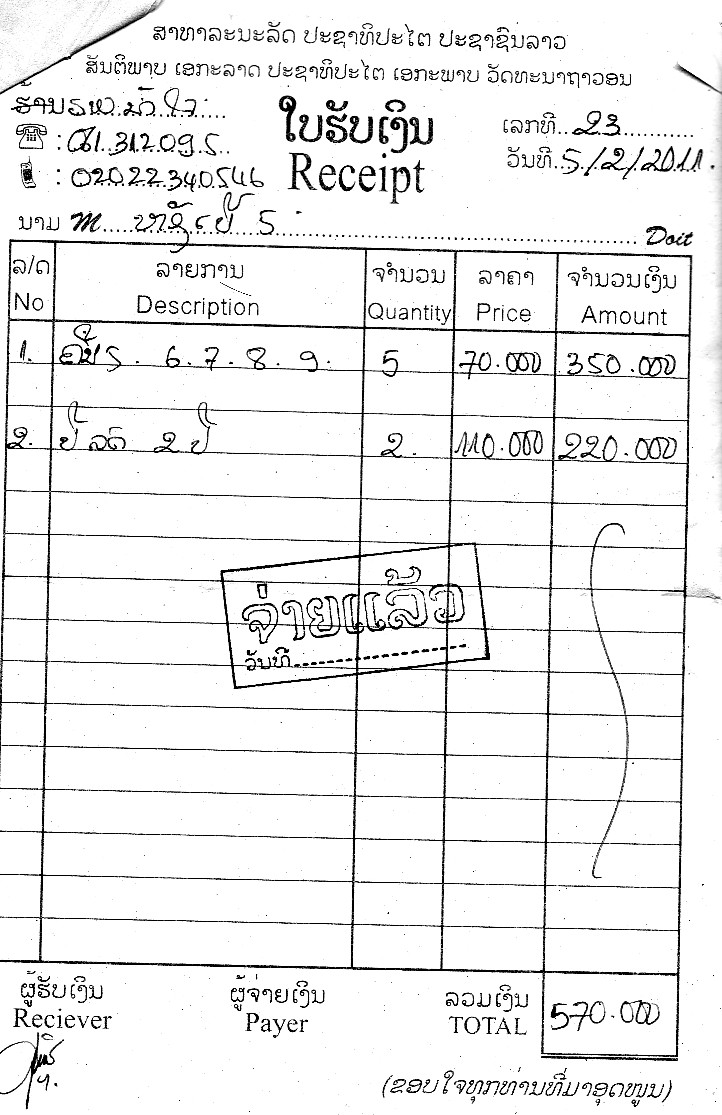 ສາທາລະນະລັດ ປະຊາທິປະໄຕ ປະຊາຊົນລາວ
ສັນຕິພາບ ເອກະລາດ ປະຊາທິປະໄຕ ເອກະພາບ ວັດທະນາຖາວອນ
ຮ້ານ
ໃບຮັບເງິນ
ເລກທີ 23
: 081.312095
Receipt
ວັນທີ 5/2/2011
: 020 22340546
ນາມ M Doit
ລ/ດ ລາຍການ ຈຳນວນ ລາຄາ ຈຳນວນເງິນ
No Description Quantity Price Amount
1. 5. 6. 7. 8. 9. 5 70.000 350.000
2. 2 ປີ 2. 110.000 220.000
ຈ່າຍແລ້ວ
ວັນທີ
ຜູ້ຮັບເງິນ ຜູ້ຈ່າຍເງິນ ລວມເງິນ
Reciever Payer TOTAL 570.000
(ຂອບໃຈທຸກທ່ານທີ່ມາອຸດໜູນ)